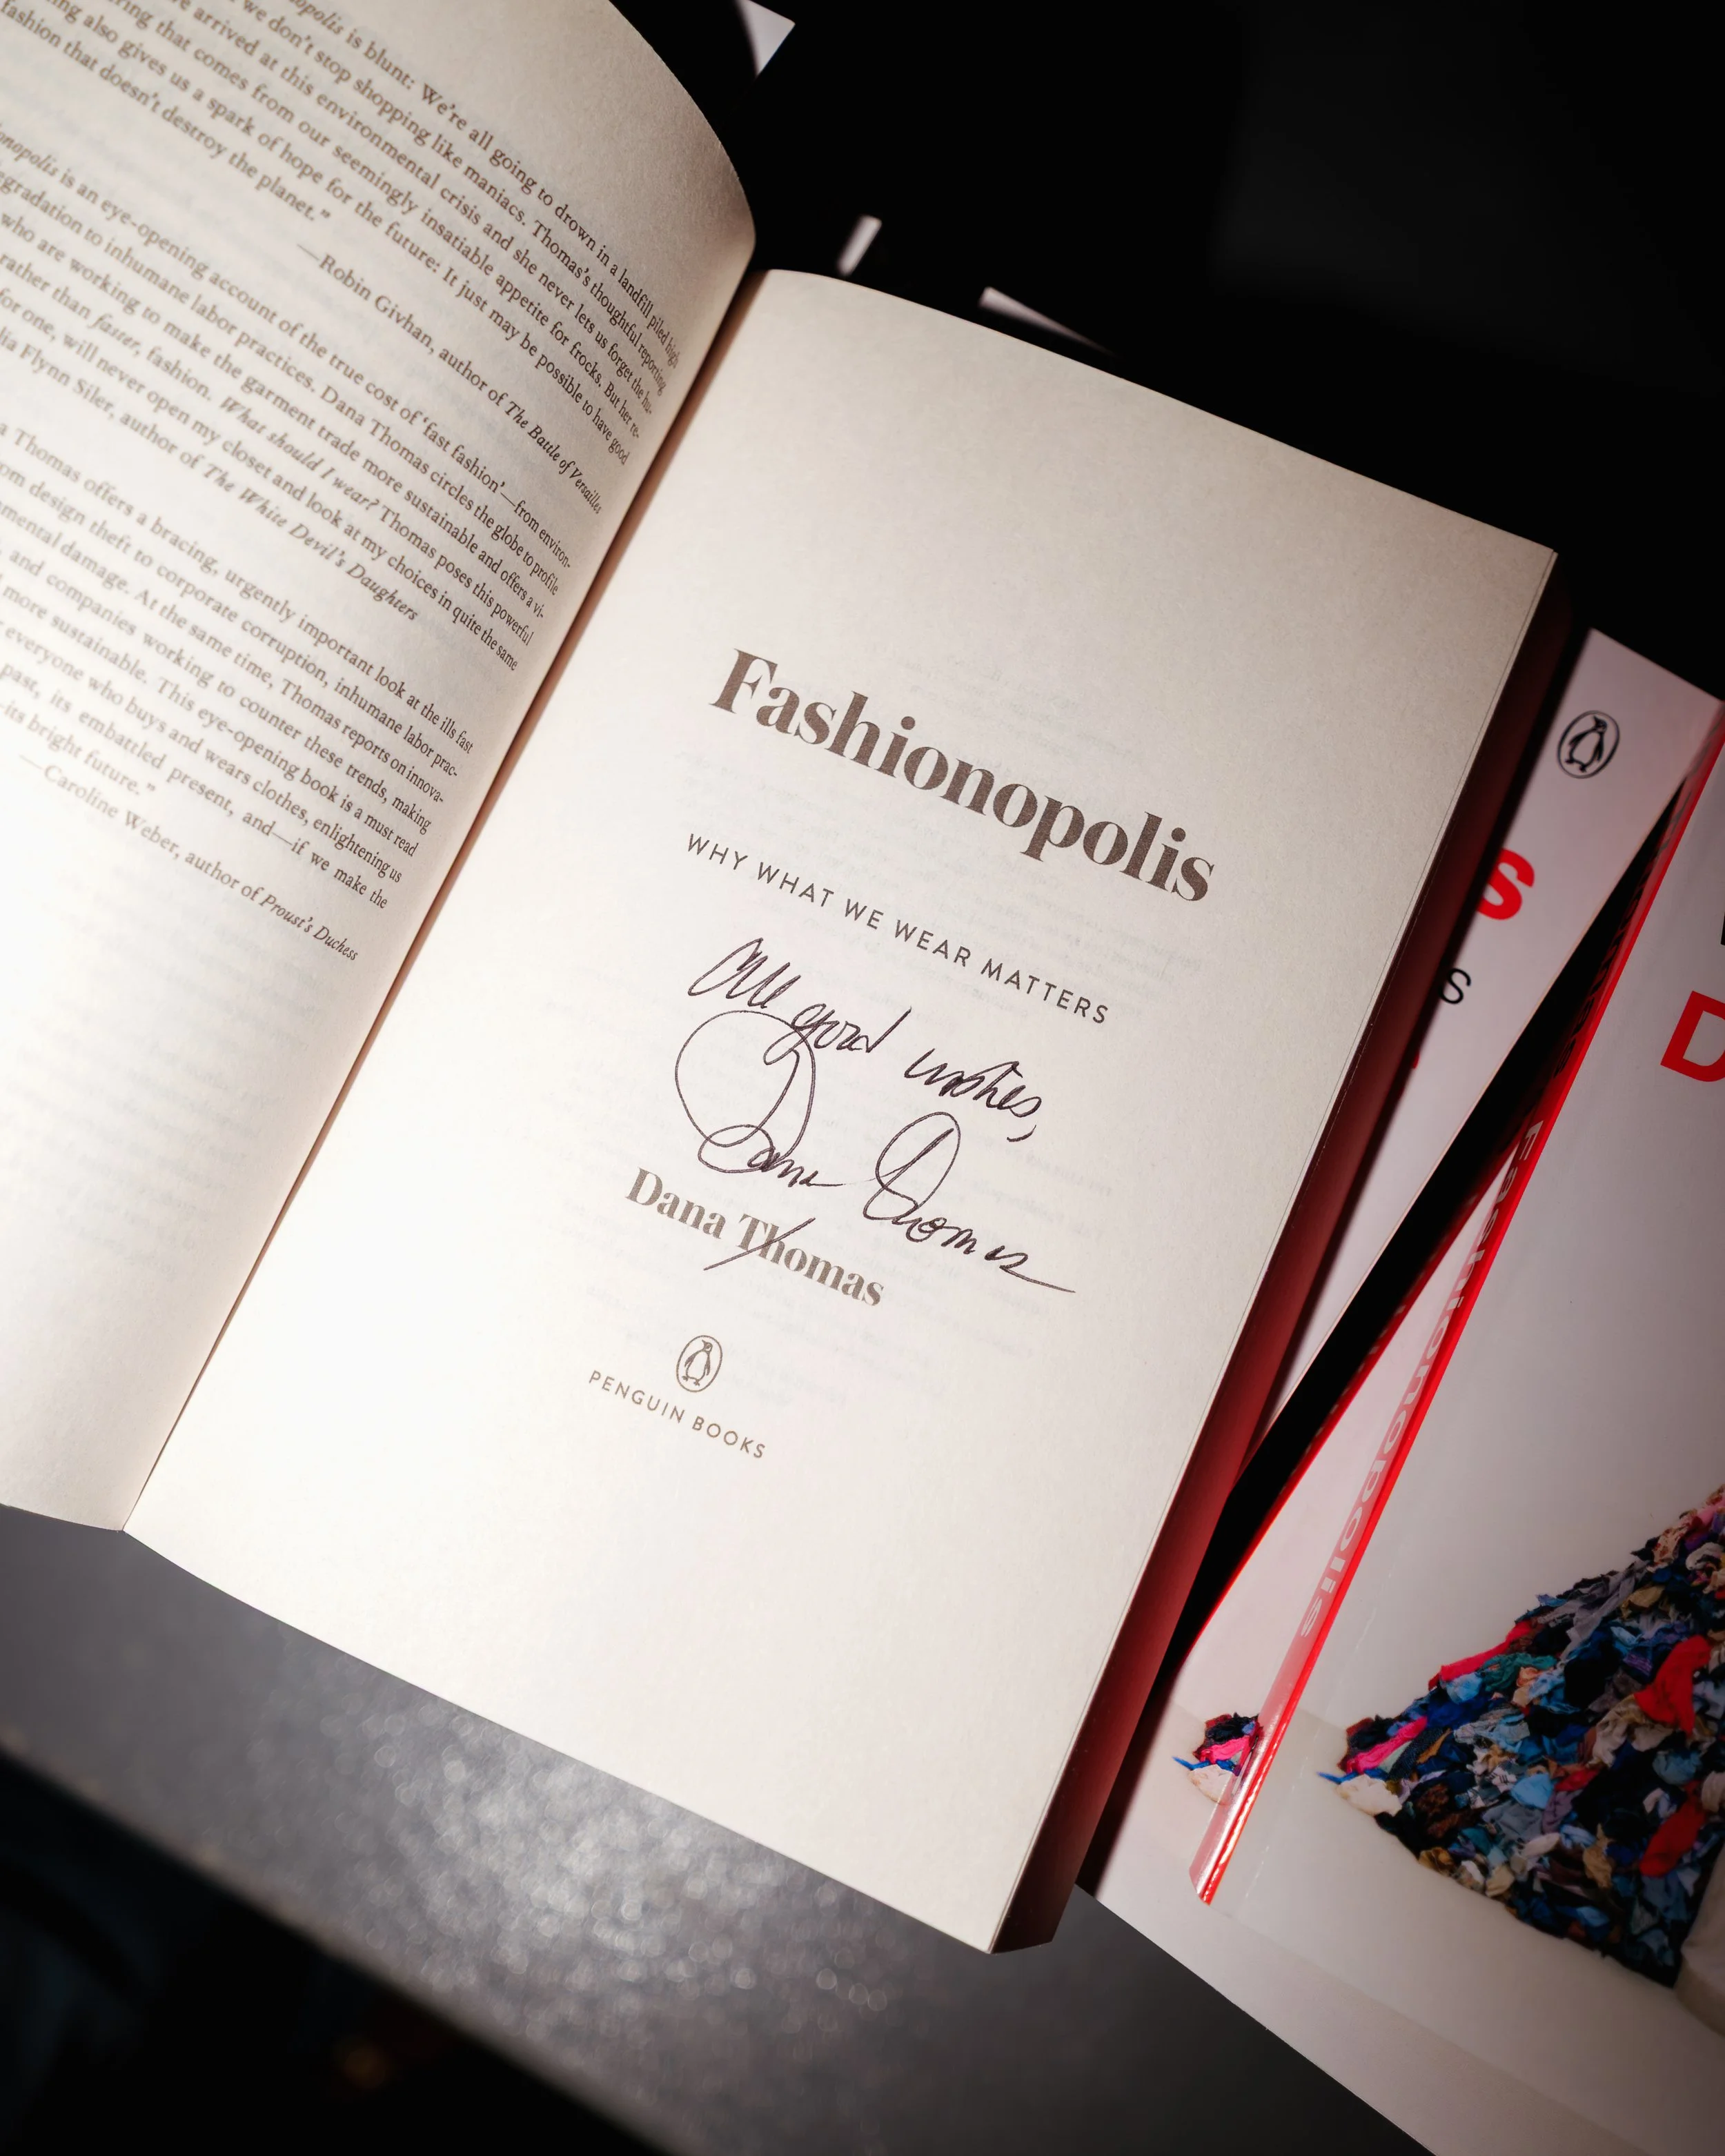 nopolis is blunt: We're all going to drown in a landfill piled high
we don't stop shopping like maniacs. Thomas's thoughtful reporting
arrived at this environmental crisis and she never lets us forget the hu-
ring that comes from our seemingly insatiable appetite for frocks. But her re-
ing also gives us a spark of hope for the future: It just may be possible to have good
fashion that doesn't destroy the planet."
—Robin Givhan, author of The Battle of Versailles
onopolis is an eye-opening account of the true cost of 'fast fashion'—from environ-
egradation to inhumane labor practices. Dana Thomas circles the globe to profile
who are working to make the garment trade more sustainable and offers a vi-
rather than faster, fashion. What should I wear? Thomas poses this powerful
for one, will never open my closet and look at my choices in quite the same
lia Flynn Siler, author of The White Devil's Daughters
a Thomas offers a bracing, urgently important look at the ills fast
om design theft to corporate corruption, inhumane labor prac-
mental damage. At the same time, Thomas reports on innova-
, and companies working to counter these trends, making
more sustainable. This eye-opening book is a must read
everyone who buys and wears clothes, enlightening us
past, its embattled present, and—if we make the
-its bright future."
—Caroline Weber, author of Proust's Duchess
Fashionopolis
WHY WHAT WE WEAR MATTERS
All good wishes,
Dana Thomas
Dana Thomas
PENGUIN BOOKS
S
S
D
Fashionopolis